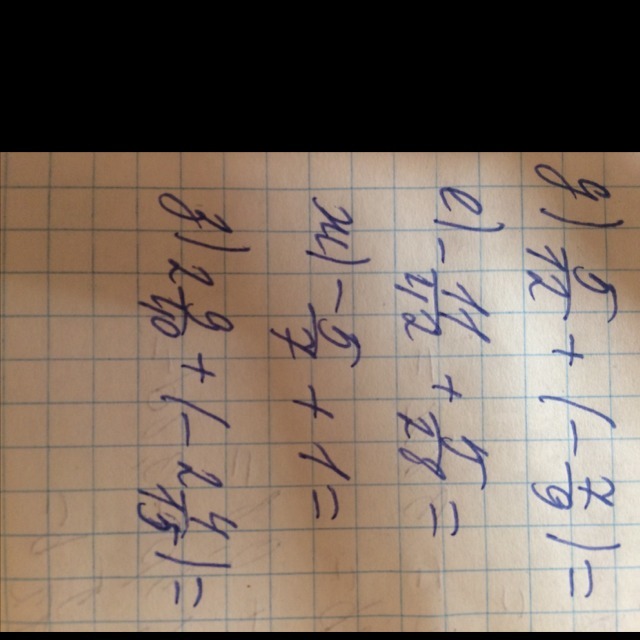 д) 5/12 + (-7/9) =
е) -11/42 + 5/28 =
ж) -5/7 + 1 =
з) 2 9/10 + (-2 4/15) =